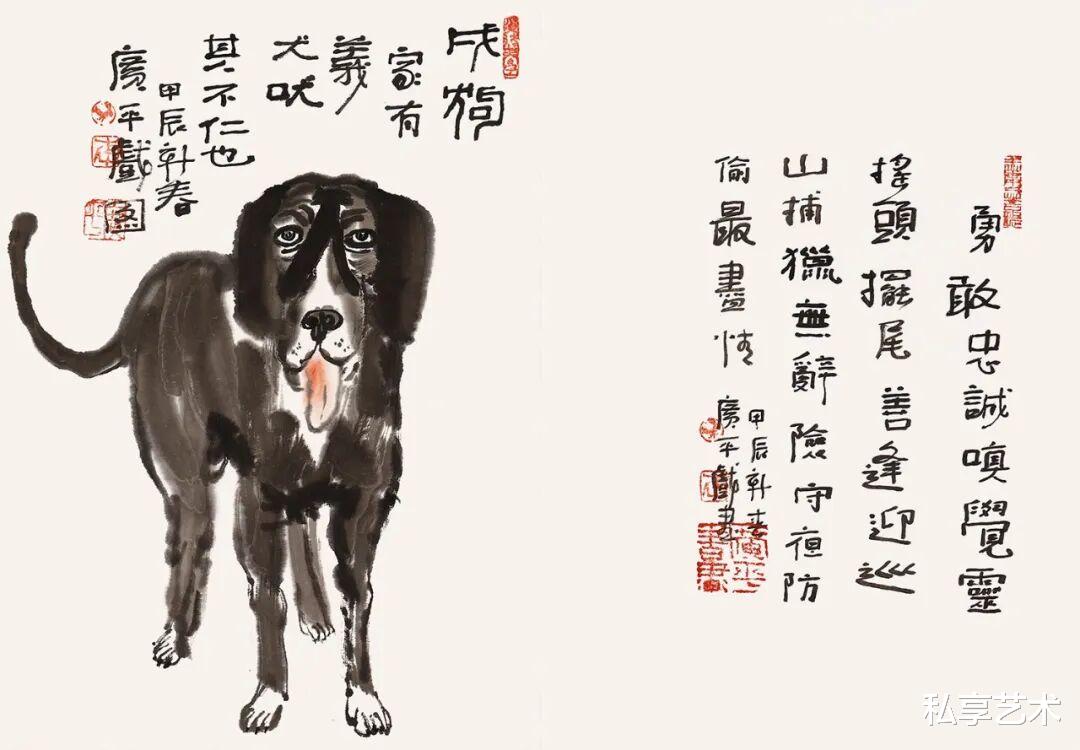 戌狗
家有
義
犬吠
其不仁也
甲辰新春
廣平戲图
勇敢忠誠嗅覺靈
搖頭擺尾善逢迎巡
山捕獵無辭險守夜防
偷最盡情
甲辰新春
廣平戲畫
私享艺术